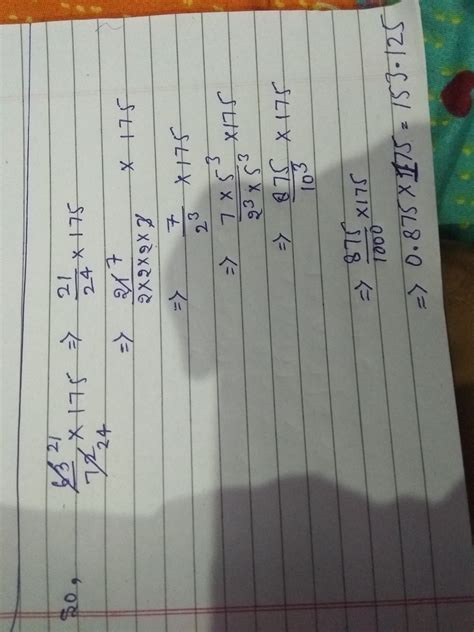 So, 63 21/72 24 × 175 ⇒ 21/24 × 175
⇒ 21 7/2×2×2×3 × 175
⇒ 7/2³ × 175
⇒ 7 × 5³/2³ × 5³ × 175
⇒ 875/10³ × 175
⇒ 875/1000 × 175
⇒ 0.875 × 175 = 153.125